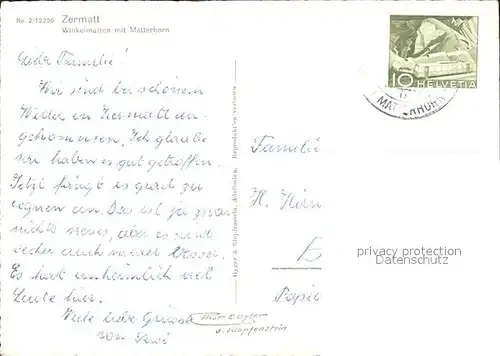 No. 2/12396 Zermatt
Winkelmatten mit Matterhorn
Liebe Familie!
Wir sind bei schönem
Wetter in Zermatt an-
gekommen. Ich glaube
wir haben es gut getroffen.
Jetzt fängt es grad zu
regnen an. Das ist ja zwar
nichts neues, aber es wird
sicher auch wieder besser.
Es hat unheimlich viel
Leute hier.
Viele liebe Grüsse
von
Gyger & Klopfenstein, Adelboden. Reproduktion verboten
10 HELVETIA
MATTERHORN
Familie
H.
privacy protection
Datenschutz
Gyger
u. Klopfenstein